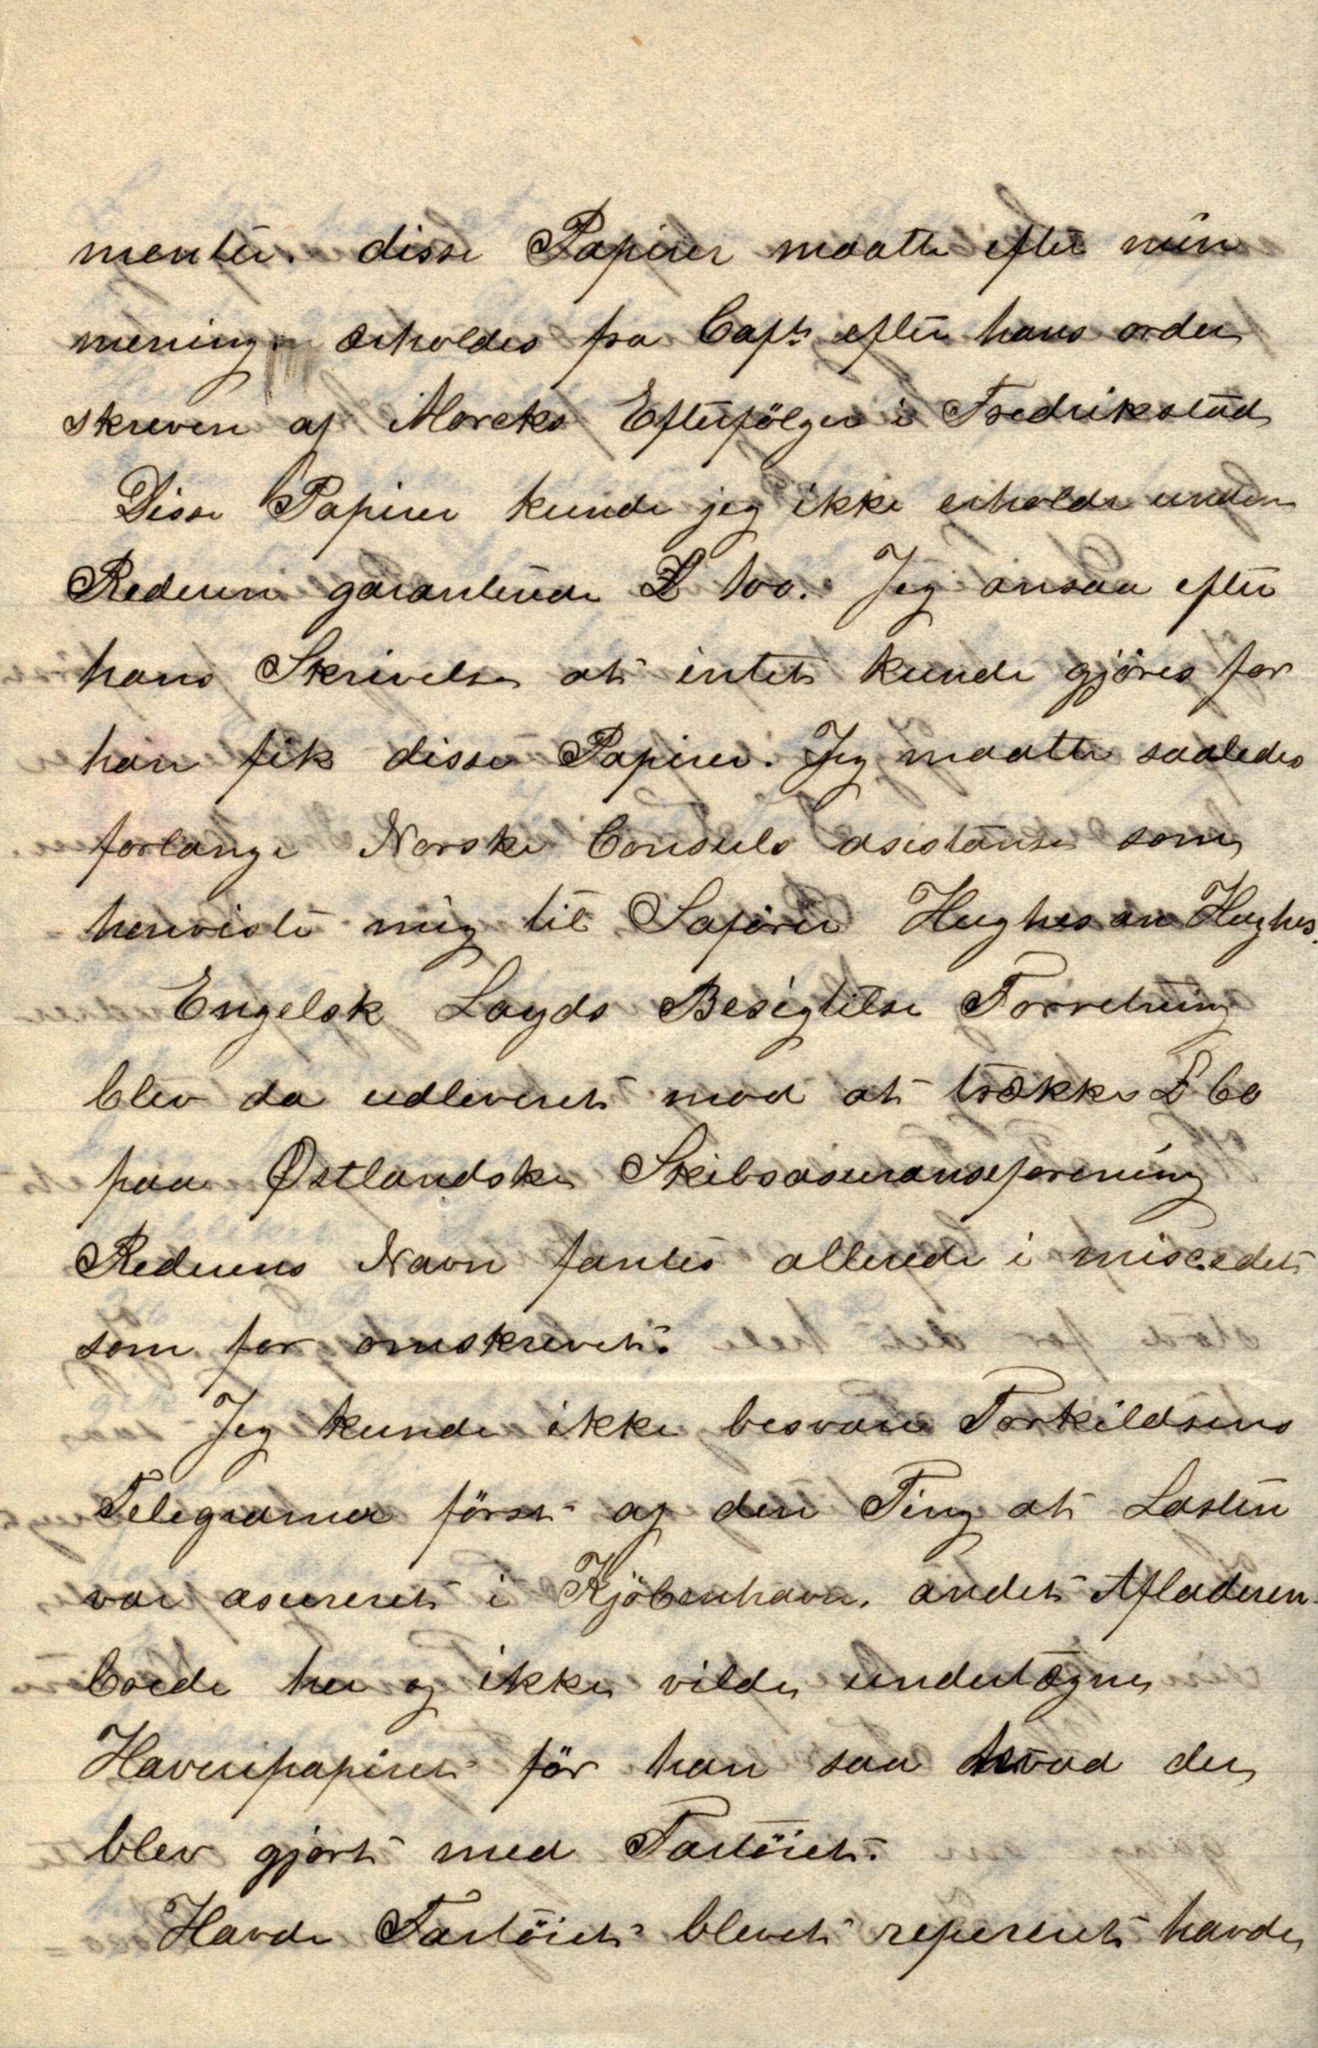 menter. disse Papirer maatte efter min
mening erholdes fra Capt. efter hans orden
skreven af Morcks Efterfölger i Fredrikstad
Disse Papirer kunde jeg ikke erholde uden
Rederen garanterede £ 100. Jeg ansaa efter
hans Skrivelse at intet kunde gjöres for
han fik disse Papirer. Jeg maatte saaledes
forlange Norske Consuls asistanse som
henviste mig til Saförer Hughes an Hughes.
Engelsk Loyds Besigtilse Forretning
blev da udleveret mod at trække £ 60
paa Østlandske Skibsasuranseforening
Rederens Navn fantes allerede i
som for omskrevet.
Jeg kunde ikke besvare Torkildsens
Telegramer först af den Ting at Lasten
var asureret i Kjöbenhavn. andet Afladeren
boede her og ikke vilde undertegne
Havaripapiret för han saa hvad der
blev gjort med Fartöiet.
Havde Fartöiet blevet reperert havde